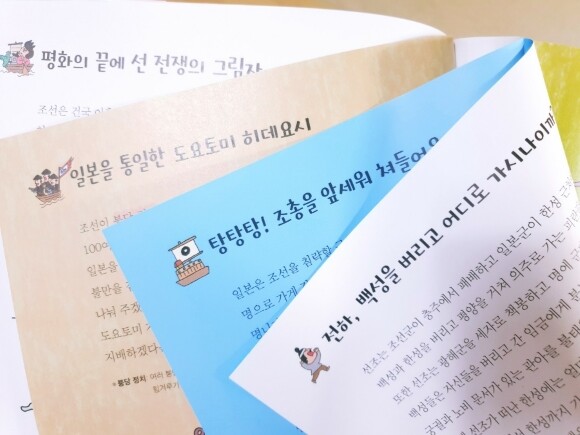 평화의 끝에 선 전쟁의 그림자
조선은 건국 이후
일본을 통일한 도요토미 히데요시
조선이 붕당
100여
일본을
불만을
나눠 주겠
도요토미
지배하겠다
• 붕당 정치 여러 붕
탕탕탕! 조총을 앞세워 쳐들어오
일본은 조선을 침략할
명으로 가게
전하, 백성을 버리고 어디로 가시나이까
선조는 조선군이 충주에서 패배하고 일본군이 한성 근
백성과 한성을 버리고 평양을 거쳐 의주로 가는 피란
또한 선조는 광해군을 세자로 책봉하고 명에 군
백성들은 자신들을 버리고 간 임금에게 분
궁궐과 노비 문서가 있는 관아를 불태
선조가 떠난 한성에는
한성까지